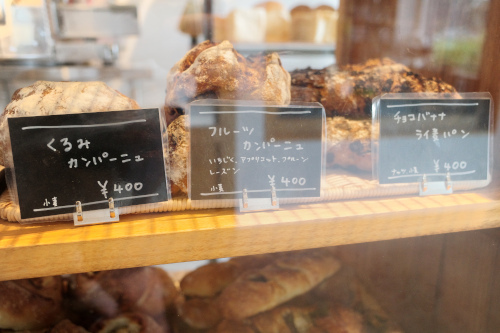 くるみ
カンパーニュ
¥400
小麦
フルーツ
カンパーニュ
いちじく、アプリコット、プルーン
レーズン
小麦
¥400
チョコバナナ
ライ麦パン
¥400